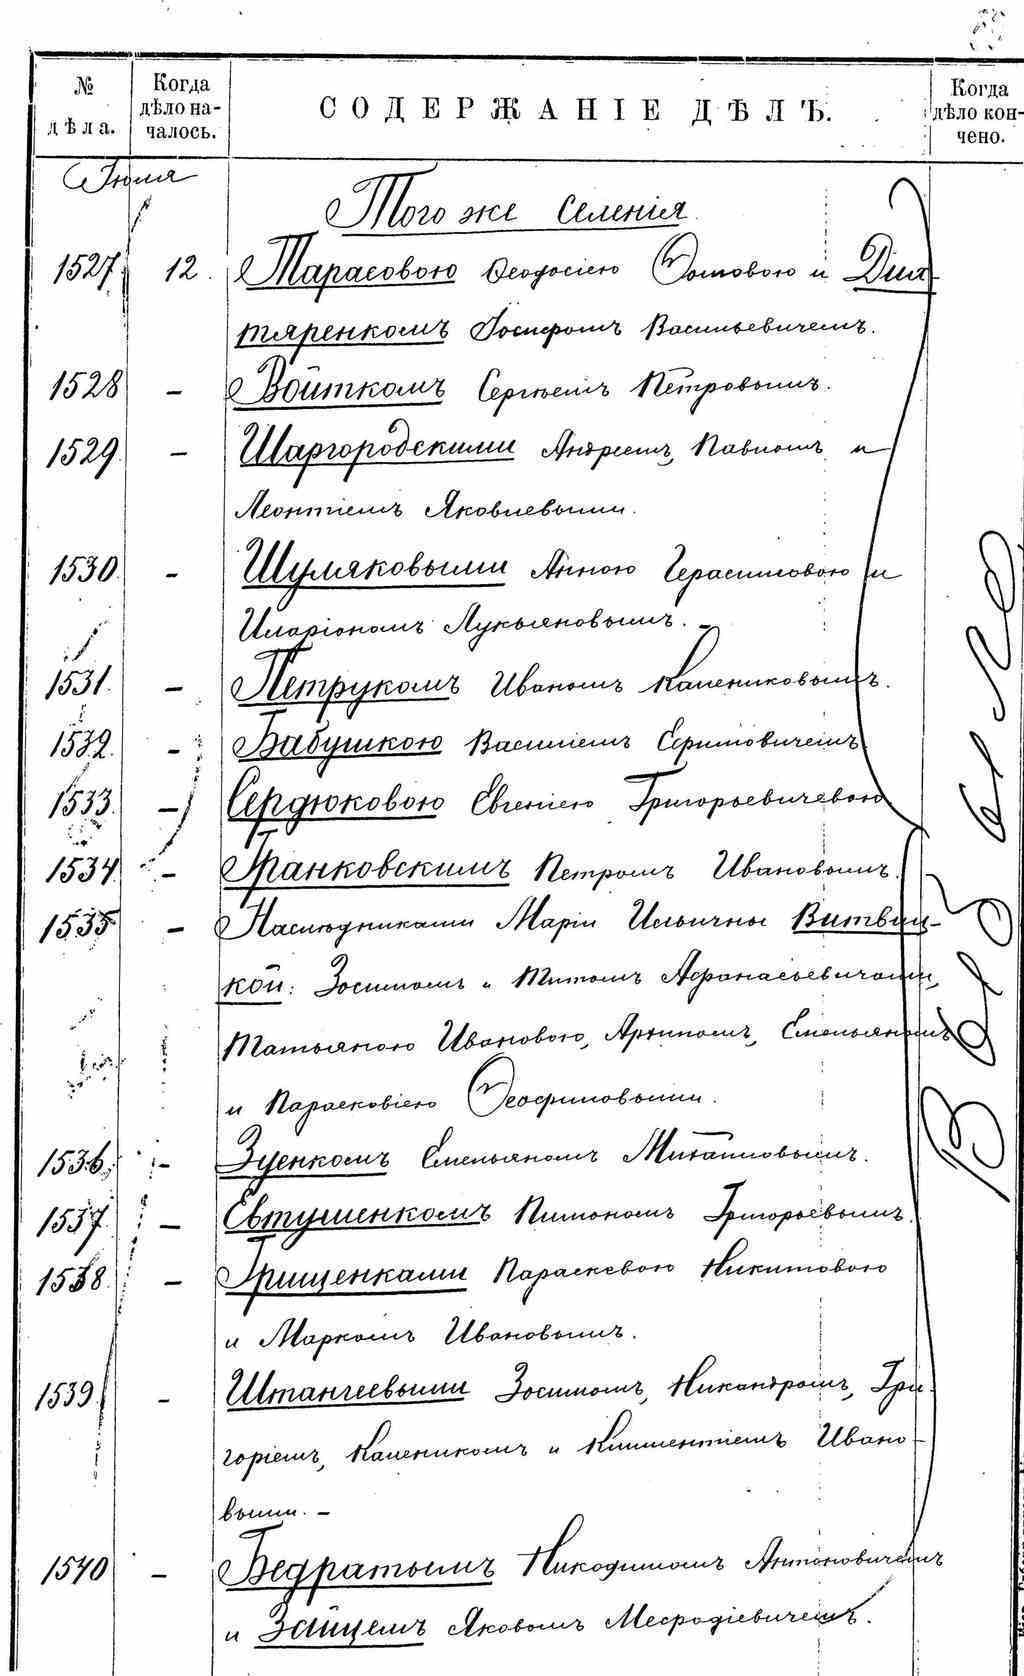 № дѣла.
Когда дѣло началось.
СОДЕРЖАНІЕ ДѢЛЪ.
Когда дѣло кончено.
Іюля
Того же Селенія
1527 12. Тарасовою Ѳеодосіею Ѳомовою и Дих-
тяренкомъ Іосифомъ Васильевичемъ.
1528 — Войткомъ Сергѣемъ Петровымъ.
1529 — Шаргородскими Андреемъ, Павломъ и
Леонтіемъ Яковлевыми.
1530. — Шуляковыми Анною Герасимовою и
Иларіономъ Лукьяновымъ. —
1531. — Петрукомъ Иваномъ Калениковымъ.
1532. — Бабушкою Василіемъ Ефимовичемъ
1533. — Сердюковою Евгеніею Григорьевичевою
1534 — Франковскимъ Петромъ Ивановымъ.
1535 — Наслюдниками Маріи Ильичны Витвиц-
кой: Зосимомъ и Титомъ Афанасьевичами,
Татьяною Ивановою, Архипомъ, Емельяномъ
и Парасковіею Ѳеофиловыми.
1536. — Зуенкомъ Емельяномъ Михайловымъ.
1537 — Евтушенкомъ Пимономъ Григорьевымъ.
1538 — Грищенками Параскевою Никитовою
и Маркомъ Ивановымъ.
1539 — Штангеевыми Зосимомъ, Никандромъ, Гри-
горіемъ, Калеником и Климентіемъ Ивано-
выми. —
1540 — Бедратымъ Никодимомъ Антоновичемъ
и Зайцемъ Яковомъ Мефодіевичемъ.
Выбыло